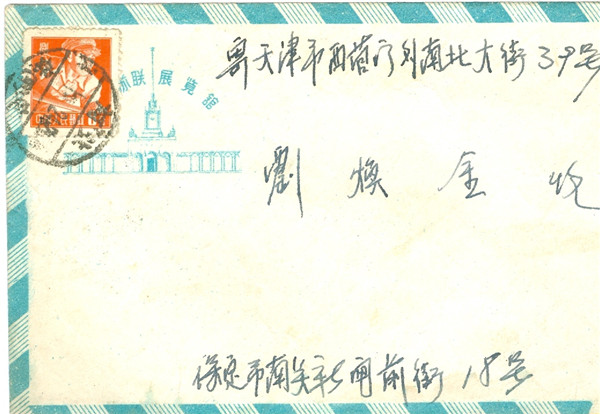 寄天津市西营门外南北大街39号
苏联展览馆
劉焕金 收
保定市南关 闸前街18号